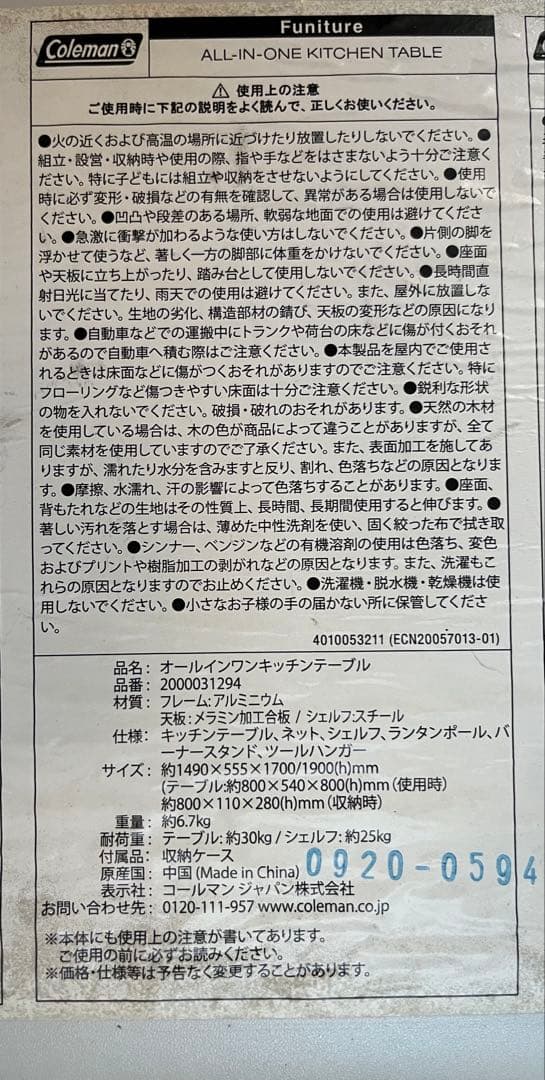 Coleman
Funiture
ALL-IN-ONE KITCHEN TABLE
⚠ 使用上の注意
ご使用時に下記の説明をよく読んで、正しくお使いください。
●火の近くおよび高温の場所に近づけたり放置したりしないでください。●
組立・設営・収納時や使用の際、指や手などをはさまないよう十分ご注意く
ださい。特に子どもには組立や収納をさせないようにしてください。●使用
時に必ず変形・破損などの有無を確認して、異常がある場合は使用しないで
ください。●凹凸や段差のある場所、軟弱な地面での使用は避けてくださ
い。●急激に衝撃が加わるような使い方はしないでください。●片側の脚を
浮かせて使うなど、著しく一方の脚部に体重をかけないでください。●座面
や天板に立ち上がったり、踏み台として使用しないでください。●長時間直
射日光に当てたり、雨天での使用は避けてください。また、屋外に放置しな
いでください。生地の劣化、構造部材の錆び、天板の変形などの原因になり
ます。●自動車などでの運搬中にトランクや荷台の床などに傷が付くおそれ
があるので自動車へ積む際はご注意ください。●本製品を屋内でご使用さ
れるときは床面などに傷がつくおそれがありますのでご注意ください。特に
フローリングなど傷つきやすい床面は十分ご注意ください。●鋭利な形状
の物を入れないでください。破損・破れのおそれがあります。●天然の木材
を使用している場合は、木の色が商品によって違うことがありますが、全て
同じ素材を使用していますのでご了承ください。また、表面加工を施してあ
りますが、濡れたり水分を含みますと反り、割れ、色落ちなどの原因となりま
す。●摩擦、水濡れ、汗の影響によって色落ちすることがあります。●座面、
背もたれなどの生地はその性質上、長時間、長期間使用すると伸びます。●
著しい汚れを落とす場合は、薄めた中性洗剤を使い、固く絞った布で拭き取
ってください。●シンナー、ベンジンなどの有機溶剤の使用は色落ち、変色
およびプリントや樹脂加工の剥がれなどの原因となります。また、洗濯もこ
れらの原因となりますのでお止めください。●洗濯機・脱水機・乾燥機は使
用しないでください。●小さなお子様の手の届かない所に保管してくださ
い。
4010053211 (ECN20057013-01)
品名: オールインワンキッチンテーブル
品番: 2000031294
材質: フレーム:アルミニウム
天板:メラミン加工合板 / シェルフ:スチール
仕様: キッチンテーブル、ネット、シェルフ、ランタンポール、バ
ーナースタンド、ツールハンガー
サイズ: 約1490×555×1700/1900(h)mm
(テーブル:約800×540×800(h)mm (使用時)
約800×110×280(h)mm (収納時)
重量: 約6.7kg
耐荷重: テーブル:約30kg / シェルフ:約25kg
付属品: 収納ケース
原産国: 中国 (Made in China) 0920-0594
表示社: コールマン ジャパン株式会社
お問い合わせ先: 0120-111-957 www.coleman.co.jp
※本体にも使用上の注意が書いてあります。
ご使用の前に必ずお読みください。
※価格・仕様等は予告なく変更することがあります。